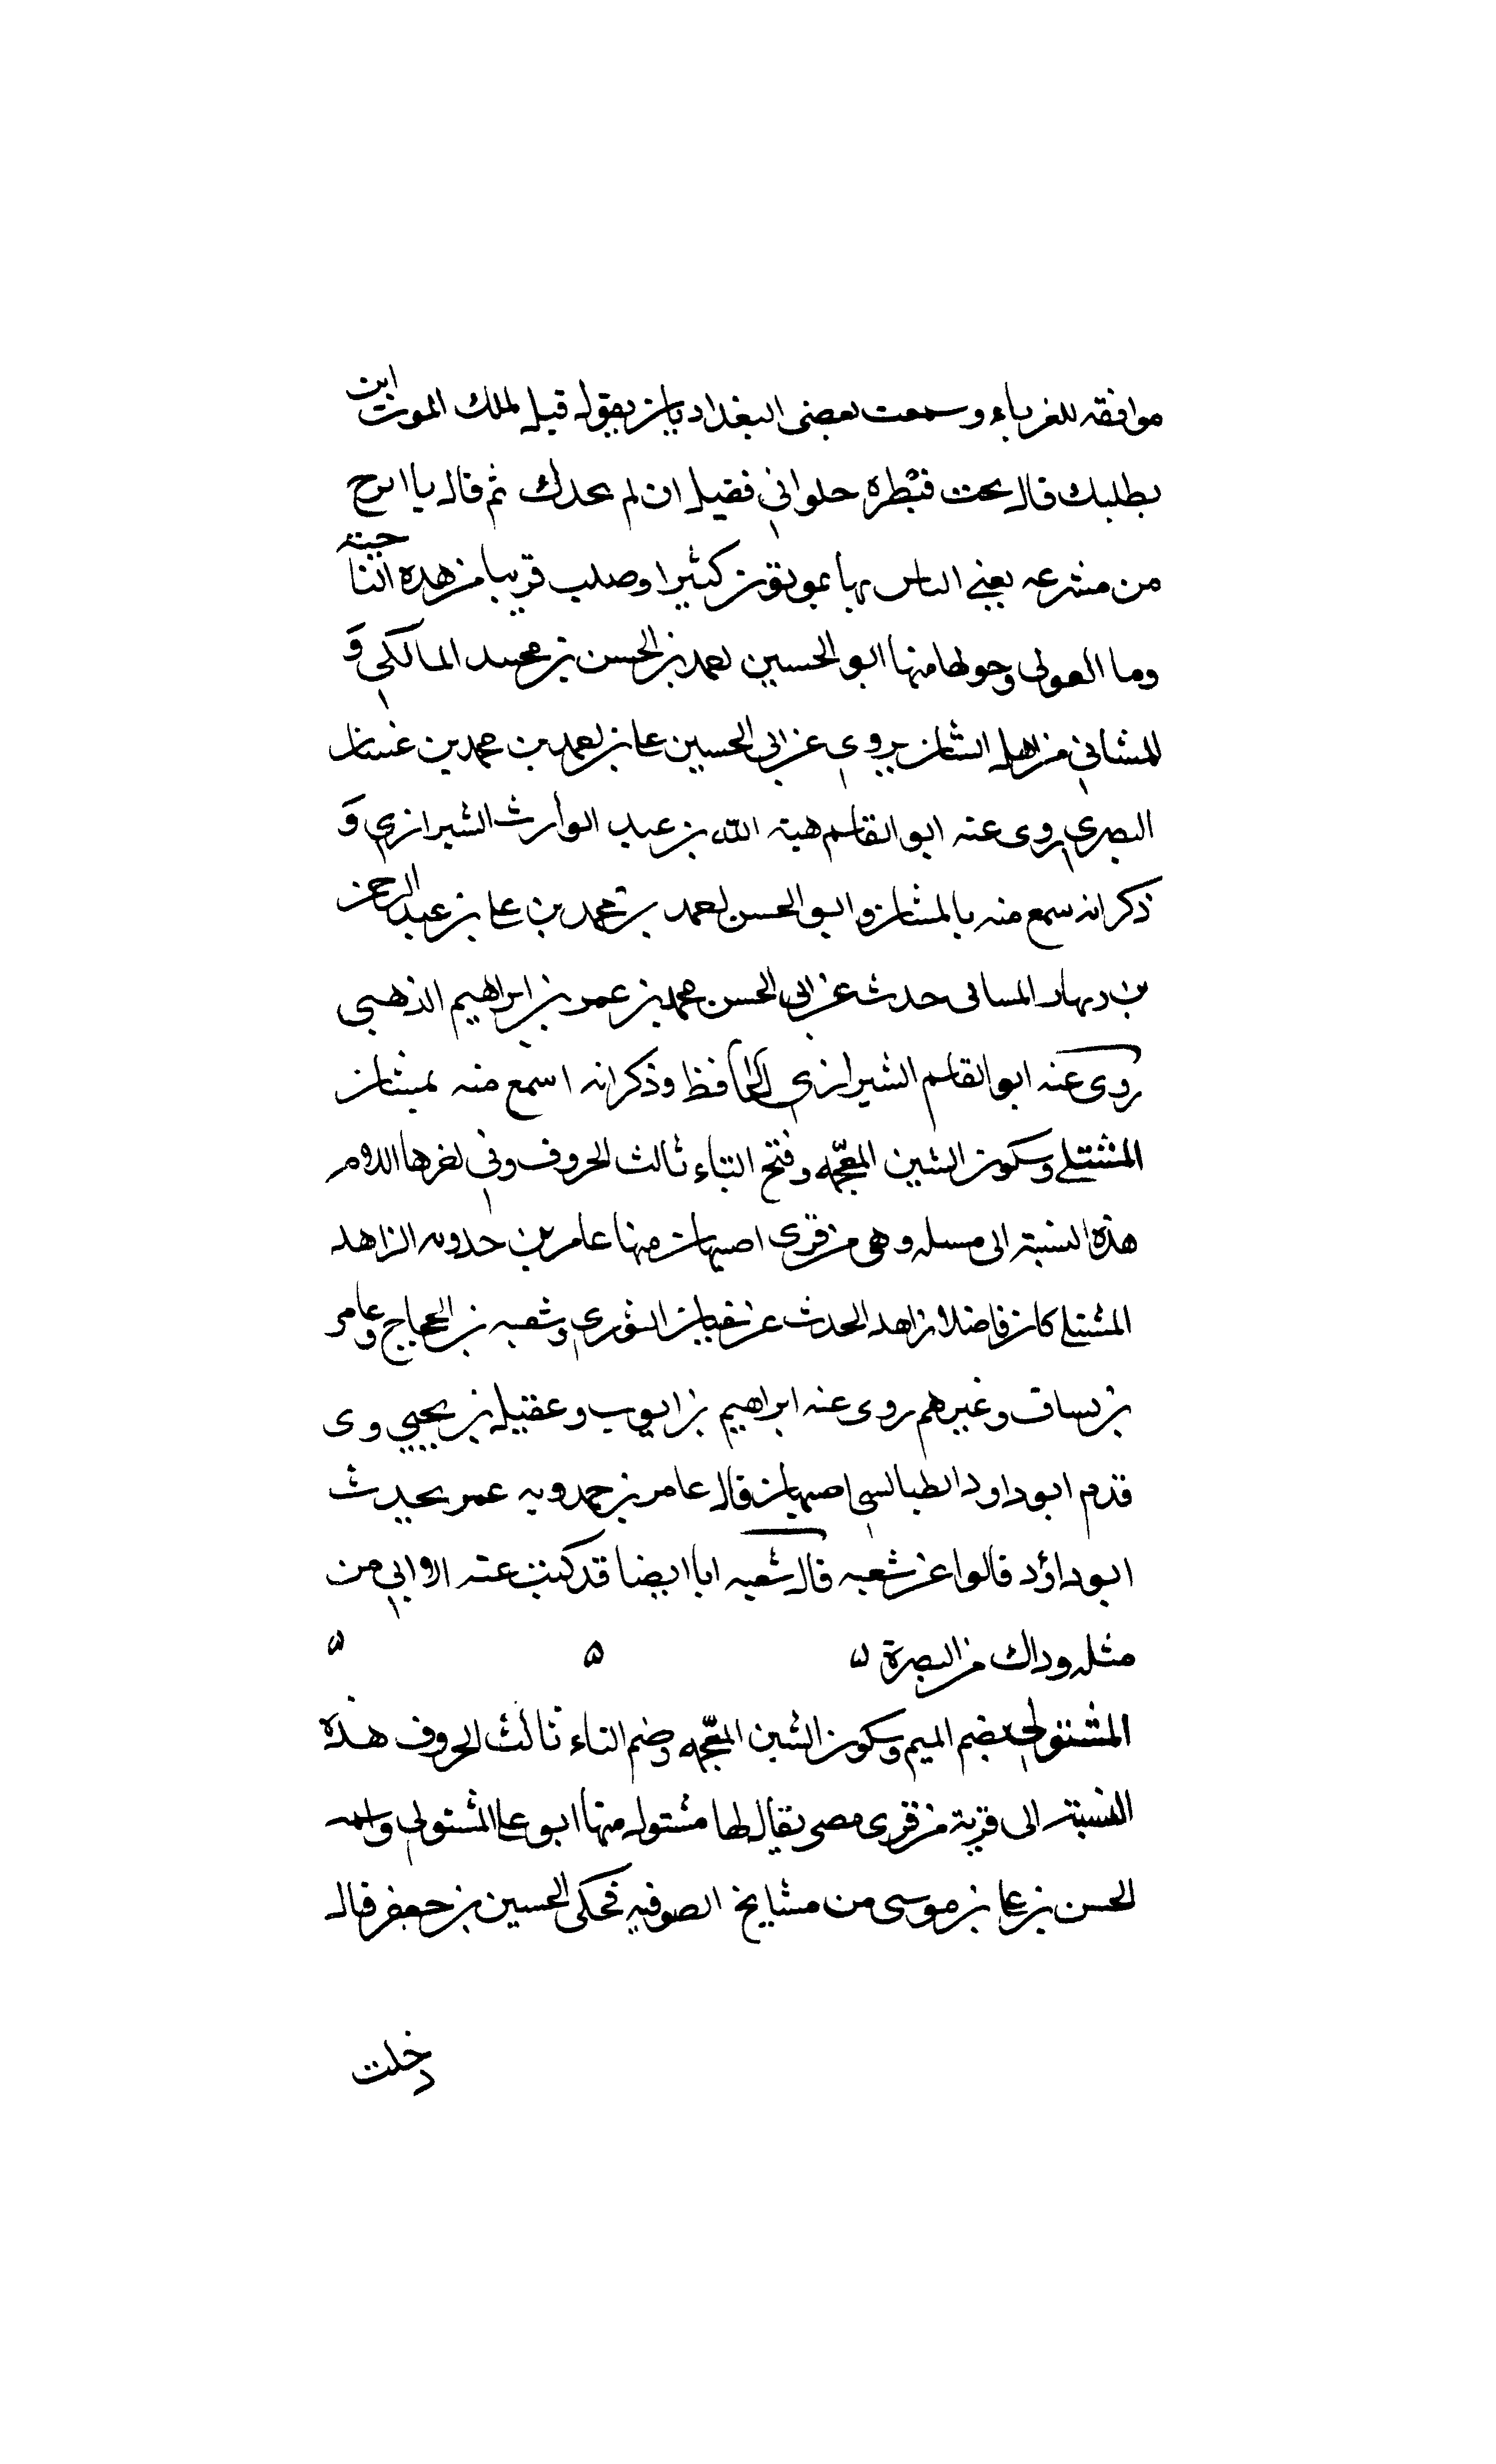 موافقه للغرباء وسمعت بعض البغداديين يقول قيل لملك الموت اين
نطلبك قال تحت قنطرة حلوان فقيل ان لم نجدك ثم قال ما ابرح
من مشرعه يعني الناس بها يموتون كثيرا وصلب قريبا من هذه
وما حولها منها ابو الحسين احمد بن الحسن بن محمد المالكي و
المشاني من اهل المشان يروي عن ابي الحسين علي بن احمد بن محمد بن غسان
البصري روى عنه ابو القاسم هبة الله بن عبد الوارث الشيرازي و
ذكر انه سمع منه بالمشان وابو الحسن احمد بن محمد بن علي بن عبد الرحمن
بن دينار المساني حدث عن ابي الحسن محمد بن عمر بن ابراهيم الذهبي
روى عنه ابو القاسم الشيرازي الحافظ وذكر انه اسمع منه بمشان
المشتلي وسكون الشين المعجمه وفتح التاء ثالث الحروف وفي اخرها اللام
هذه النسبة الى مسله وهي من قرى اصبهان منها عامر بن حدويه الزاهد
المشتلي كان فاضلا زاهدا يحدث عن سفيان الثوري وشعبه بن الحجاج وعامر
بن يساف وغيرهم روى عنه ابراهيم بن ايوب وعقيل بن يحيى وى
قدم ابو داود الطيالسي اصبهان قال عامر بن حمدويه عمر يحدث
ابو داؤد قالوا عن شعبه قال شعبه ايضا قد كتبت عنه من
مثله وذاك من البصرة ٥ ٥ ٥
المشتولي بضم الميم وسكون الشين المعجمه وضم التاء ثالث الحروف هذه
النسبة الى قرية من قرى مصر يقال لها مشتول منها ابو علي المشتولي واسمه
الحسن بن علي بن موسى من مشايخ الصوفيه فحكى الحسين بن جعفر قال
دخلت